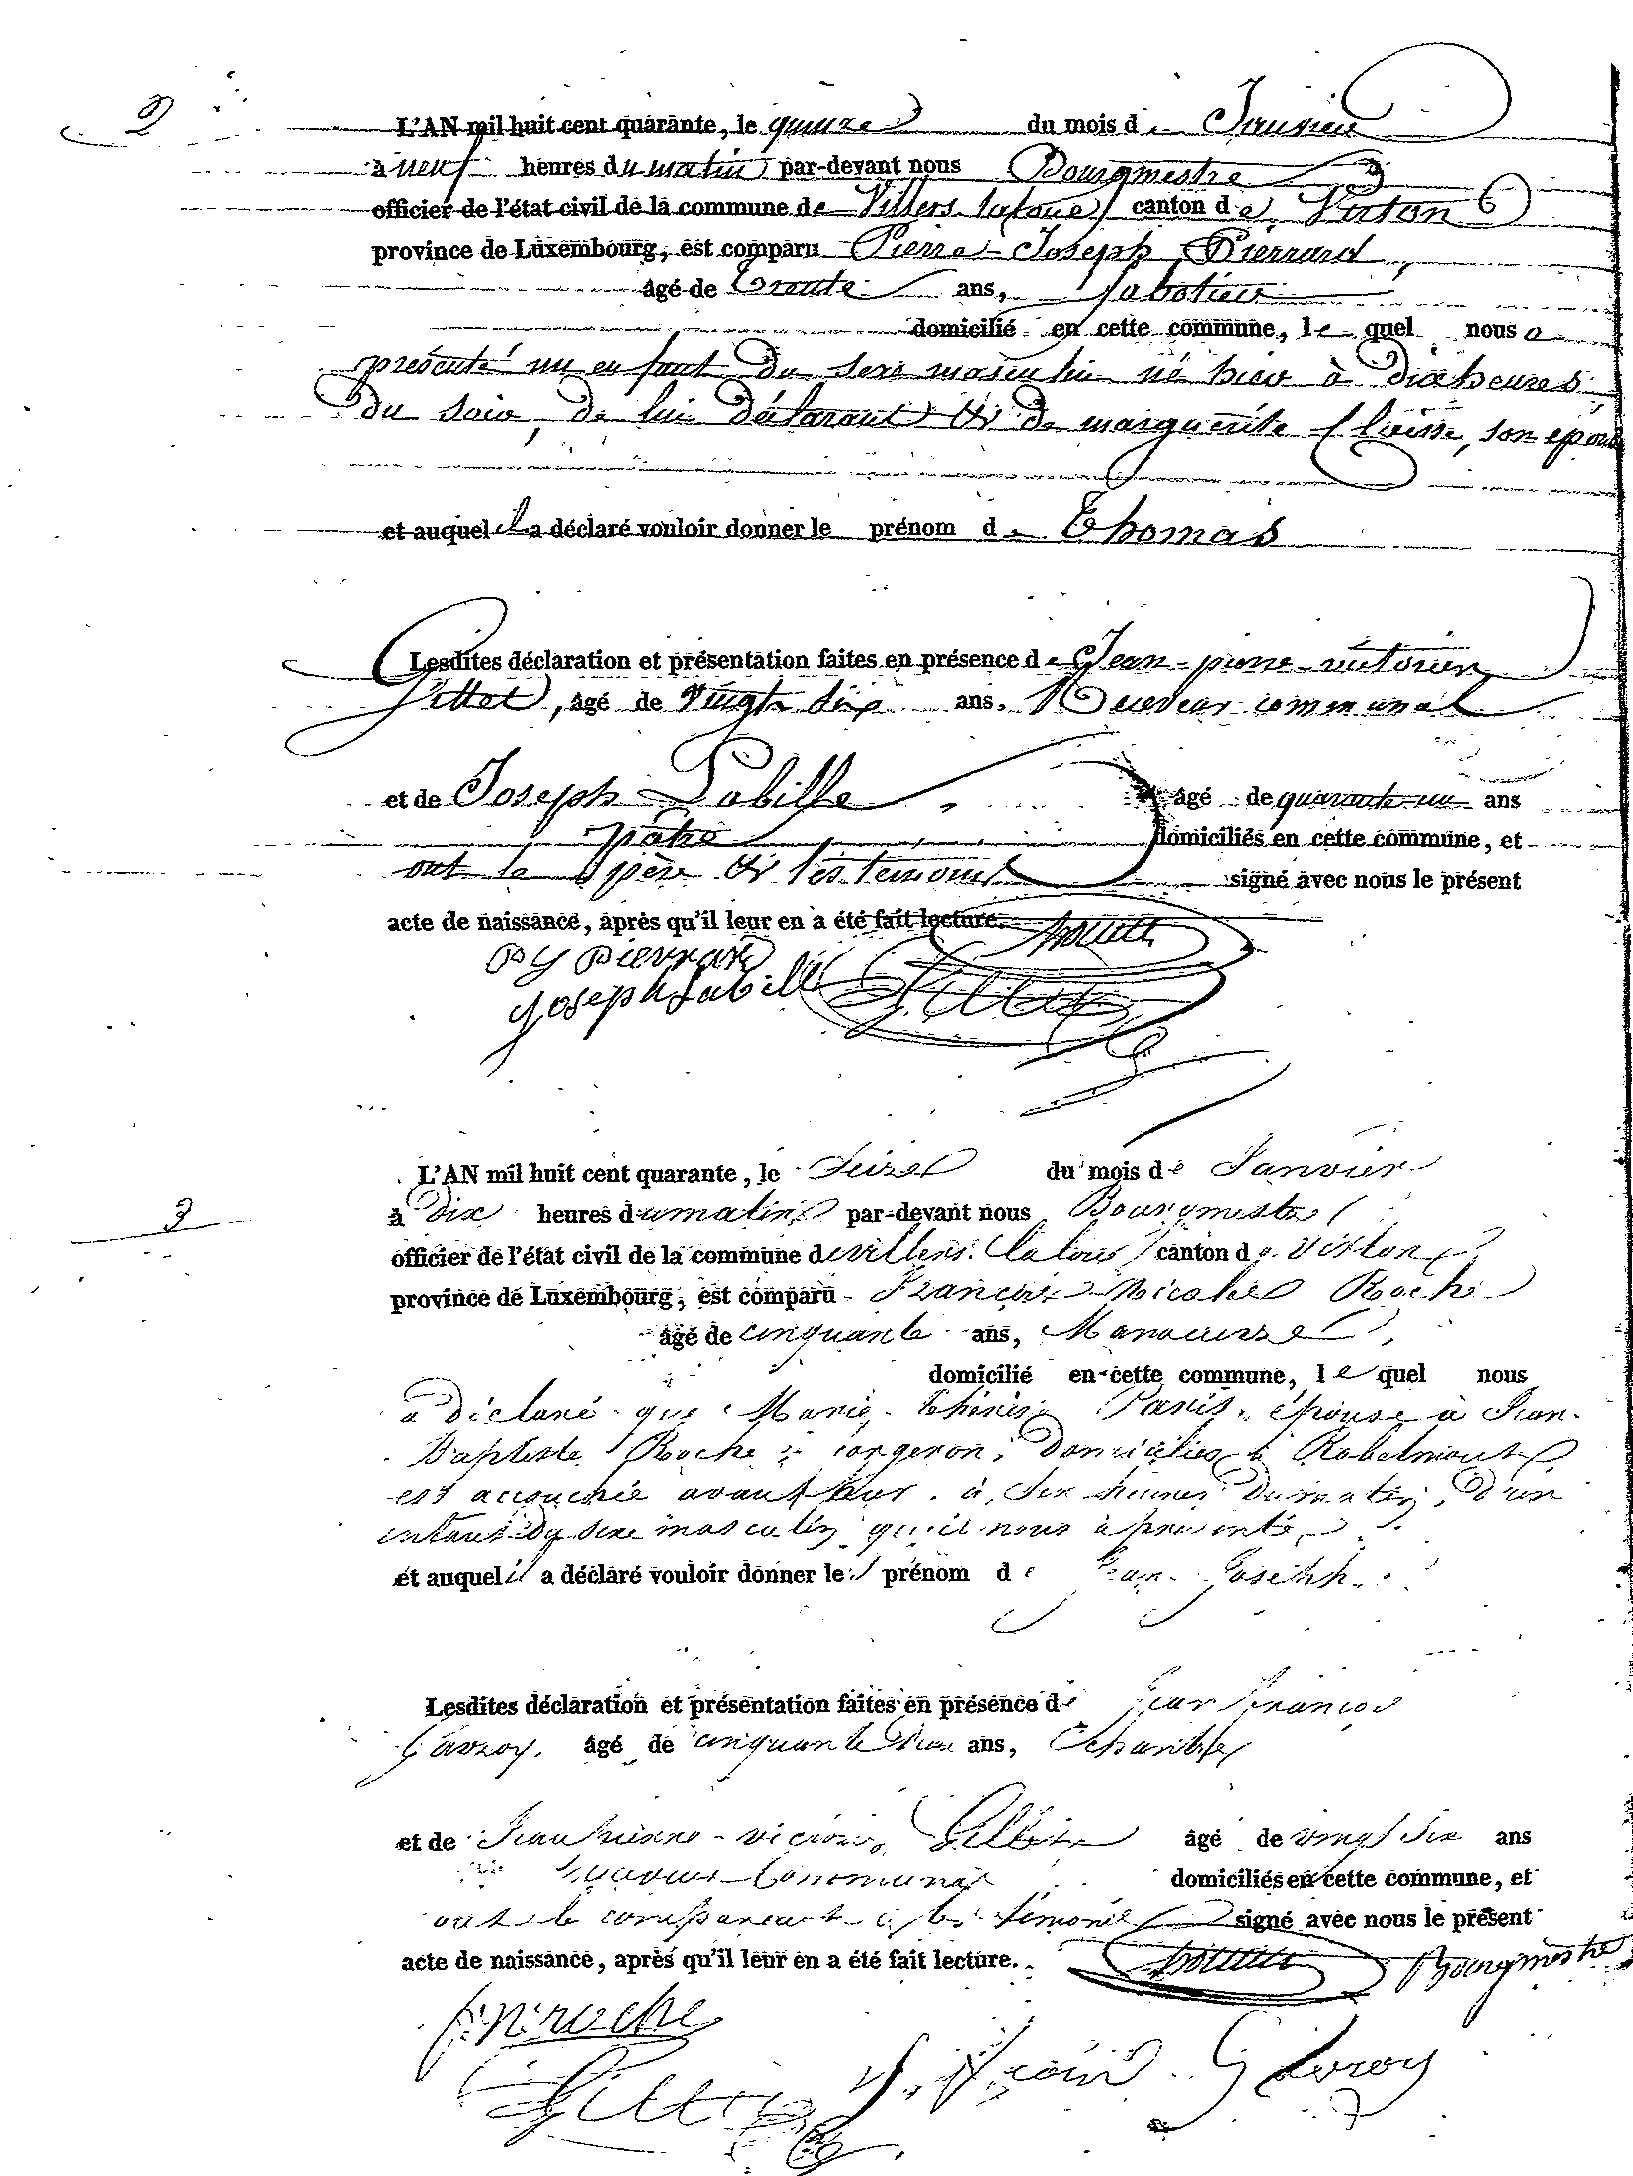 2
L'AN mil huit cent quarante, le quinze du mois de Janvier
à neuf heures du matin par-devant nous Bourgmestre
officier de l'état civil de la commune de Villers-la loue canton de Virton
province de Luxembourg, est comparu Pierre-Joseph Pierrard,
âgé de trente ans, Sabotier
domicilié en cette commune, le quel nous a
présenté un enfant du sexe masculin né hier à dix heures
du soir, de lui déclarant et de marguerite, son epouse
et auquel il a déclaré vouloir donner le prénom de Thomas
Lesdites déclaration et présentation faites en présence de Jean-pierre-victorien
Gillet, âgé de vingt six ans, Receveur communal
et de Joseph Labille âgé de quarante un ans
pâtre domiciliés en cette commune, et
ont le père et les temoins signé avec nous le présent
acte de naissance, après qu'il leur en a été fait lecture.
PJ Pierrard
Joseph Labille Gillet
3
L'AN mil huit cent quarante, le Seize du mois de Janvier
à dix heures du matin par-devant nous Bourgmestre
officier de l'état civil de la commune de villers-la loue canton de Virton
province de Luxembourg, est comparu François-Nicolas Roche
âgé de cinquante ans, Manœuvre,
domicilié en cette commune, le quel nous
a déclaré que Marie-thérèse Paris, épouse à Jean-
Baptiste Roche, forgeron, domiciliés à Robelmont
est accouchée avant hier à six heures du matin, d'un
enfant du sexe masculin qu'il nous a présenté,
et auquel il a déclaré vouloir donner les prénom de Jean-Joseph.
Lesdites déclaration et présentation faites en présence de Jean François
Gavroy, âgé de cinquante ans,
et de Jean pierre-victorien Gillet âgé de vingt six ans
Receveur Communal domiciliés en cette commune, et
ont le comparant et les témoins signé avec nous le présent
acte de naissance, après qu'il leur en a été fait lecture. Bourgmestre
f.n. roche
Gillet